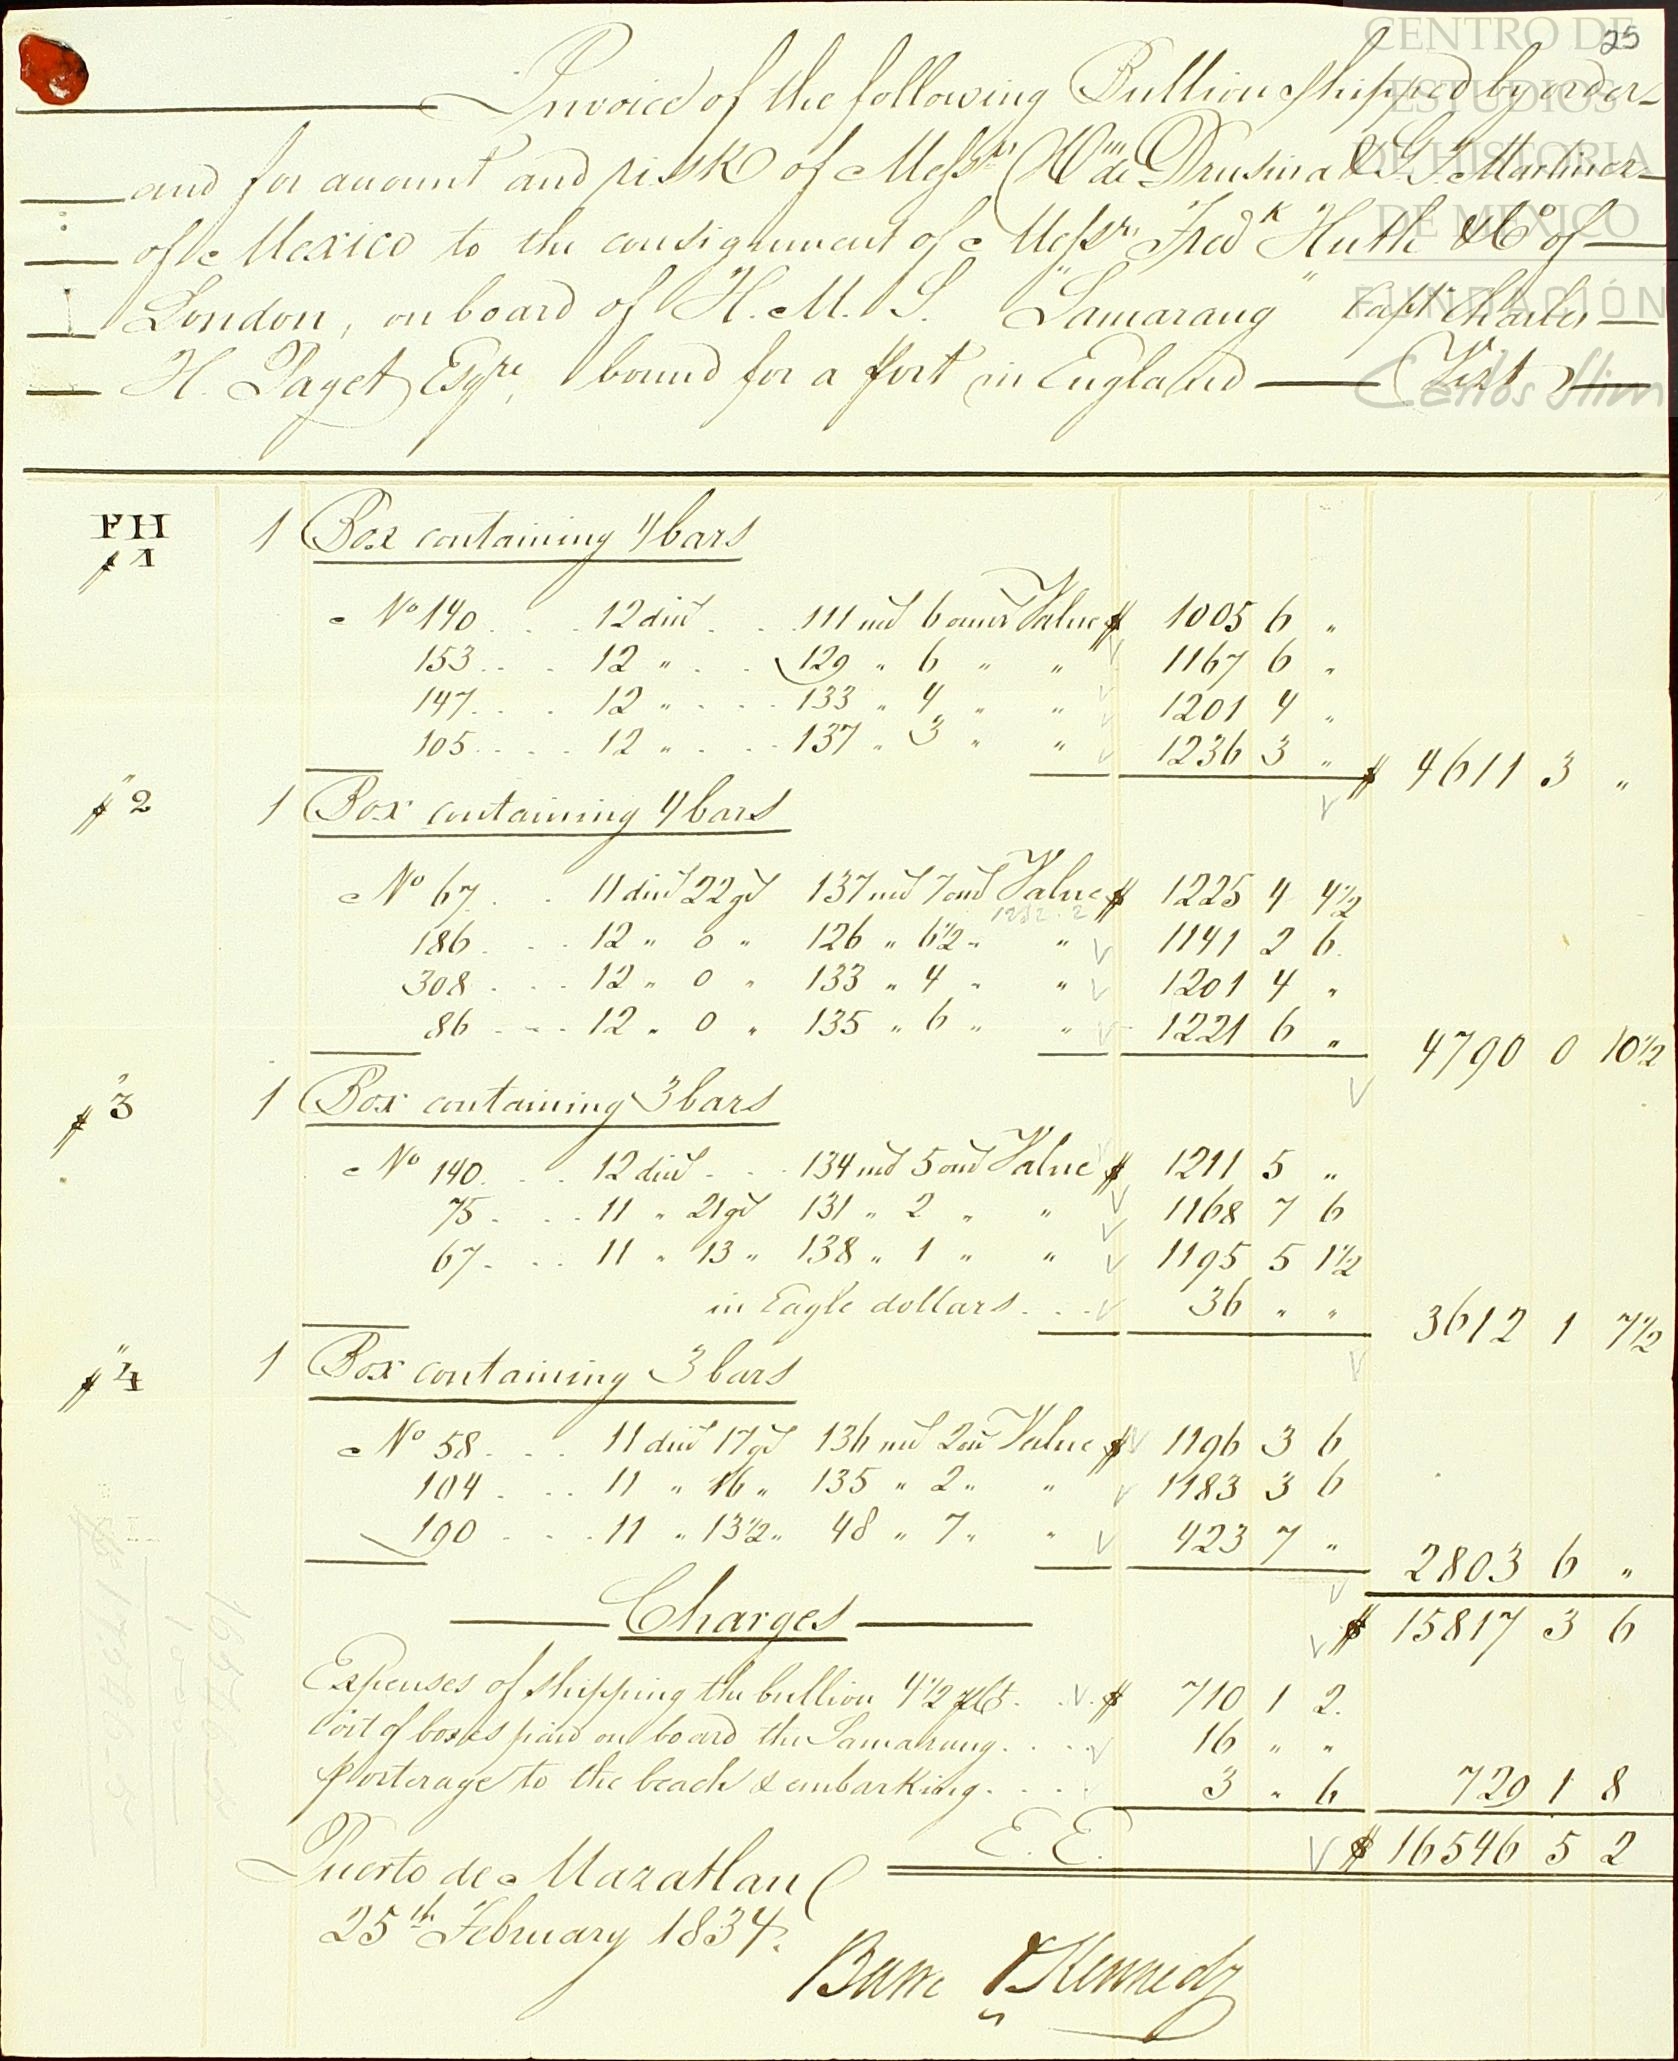 25
CENTRO DE
ESTUDIOS
DE HISTORIA
DE MÉXICO
FUNDACIÓN
Carlos Slim
Invoice of the following Bullion shipped by order
and for account and risk of Messrs Wm de Drusina & G. J. Martinez
of Mexico to the consignment of Messrs Fredk Huth & Co of
London, on board of H. M. S. "Samarang" Capt Charles
H. Paget Esqre, bound for a port in England Vizt
FH
# 1 1 Box containing 4 bars
No 140 . . . 12 dind . . . 111 md 6 ounds Value $ 1005 6 "
153 . . . 12 " . . . 129 " 6 " " 1167 6 "
147 . . . 12 " . . . 133 " 4 " " 1201 4 "
105 . . . 12 " . . . 137 " 3 " " 1236 3 " $ 4611 3 "
" # 2 1 Box containing 4 bars
No 67 . . 11 dind 22 gd 137 md 7 ond Value $ 1225 4 4½
1232.2
186 . . . 12 " 0 " 126 " 6½ " " 1141 2 6
308 . . . 12 " 0 " 133 " 4 " " 1201 4 "
86 . . . 12 " 0 " 135 " 6 " " 1221 6 " 4790 0 10½
" # 3 1 Box containing 3 bars
No 140 . . . 12 dind . . . 134 md 5 ond Value $ 1211 5 "
75 . . . 11 " 21 gd 131 " 2 " " 1168 7 6
67 . . . 11 " 13 " 138 " 1 " " 1195 5 1½
in Eagle dollars . . . 36 " " 3612 1 7½
" # 4 1 Box containing 3 bars
No 58 . . . 11 dind 17 gd 136 md 2 on Value $ 1196 3 6
104 . . . 11 " 16 " 135 " 2 " " 1183 3 6
190 . . . 11 " 13½ " 48 " 7 " " 423 7 " 2803 6 "
Charges $ 15817 3 6
Expenses of shipping the bullion 4½ pCt . . $ 710 1 2
Cost of boxes paid on board the Samarang . . . 16 " "
porterage to the beach & embarking . . . . 3 " 6 729 1 8
E. E. $ 16546 5 2
Puerto de Mazatlan
25th February 1834.
Barre & Kennedy